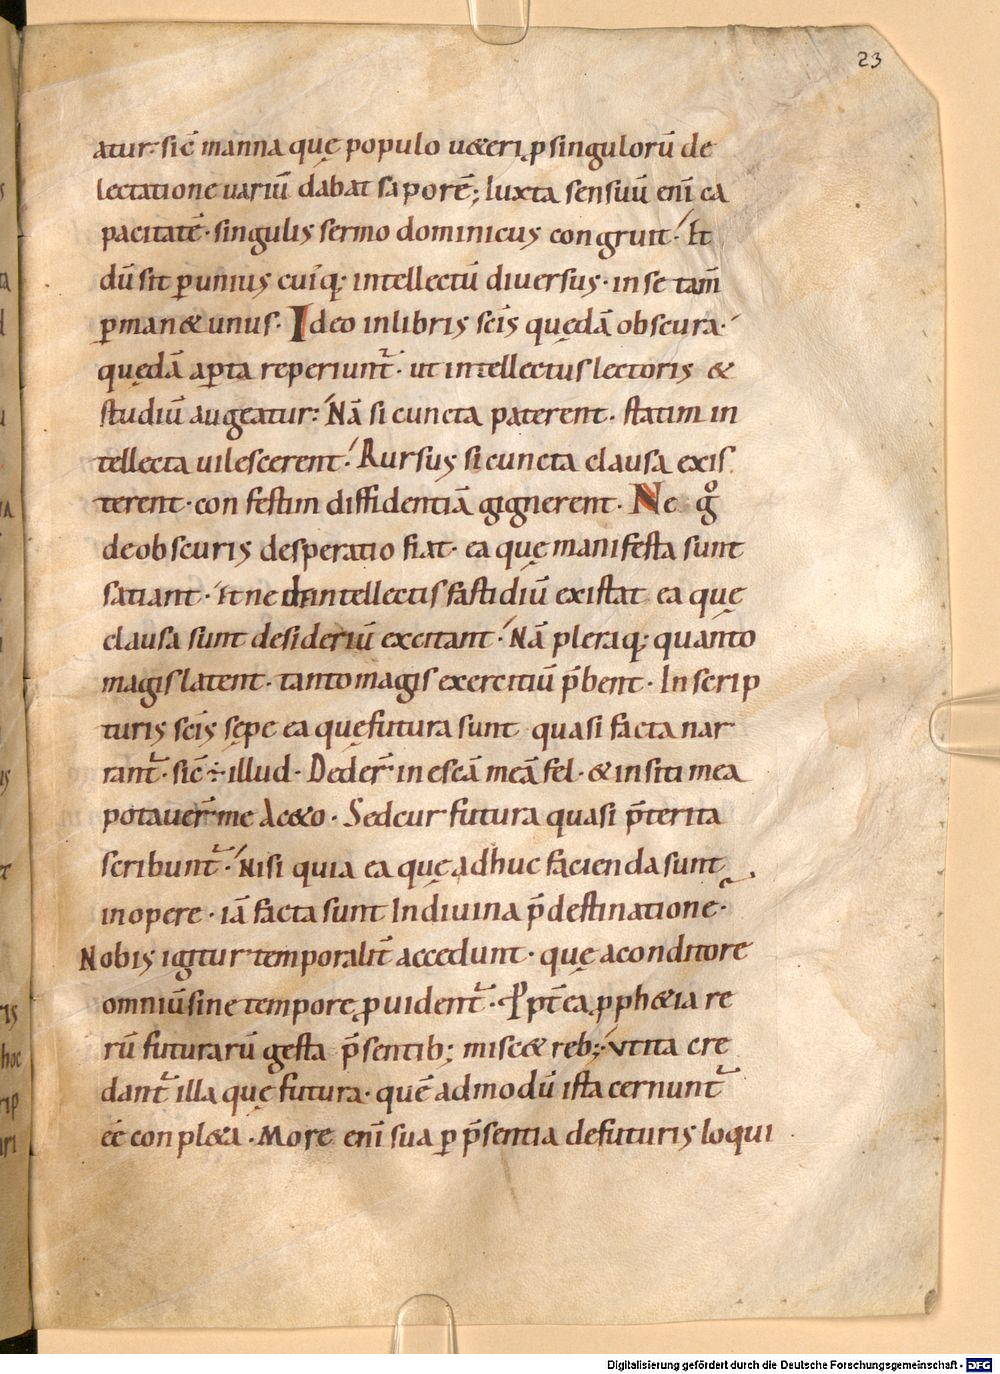 23
atur· sic̄ manna quę populo ueteri ꝓ singulorū de
lectatione uariū dabat saporē; Iuxta sensuū eni̅ ca
pacitatē· singulis sermo dominicus congruit· Et
dū sit ꝑ unius cuiq; intellectū diuersus· in se tam̅
ꝑman& unus· Ideo in libris sc̄is quędā obscura·
quędā aꝑta reperiunt̄· ut intellectus lectoris &
studiū augeatur: Nā si cuncta paterent· statim in
tellecta uilescerent· Rursus si cuncta clausa exis
terent· confestim diffidentiā gignerent· Ne gͦ
de obscuris desperatio fiat· ea quę manifesta sunt
satiant· Et ne de intellectis fastidiū existat ea quę
clausa sunt desideriū excitant· Nā pleraq; quanto
magis latent· tanto magis exercitiū p̄bent· In scrip
turis sc̄is sępe ea quę futura sunt quasi facta nar
rant̄· sic̄ ÷ illud· Deder̄ in escā meā fel· & in siti mea
potauer̄ me ac&o· Sed cur futura quasi p̄terita
scribunt̄· Nisi quia ea quę adhuc facienda sunt
in opere· iā facta sunt In diuina p̄destinatione·
Nobis igitur temporalit̄ accedunt· quę a conditore
omniū sine tempore ꝓuident̄· Ꝓpt̄ea ꝓph&ia re
rū futurarū gesta p̄sentib; misc& reb;· Vt ita cre
dant̄ illa quę futura· quē admodū ista cernunt̄
ēē conpl&a· More eni̅ sua ꝑ p̄sentia de futuris loqui
Digitalisierung gefördert durch die Deutsche Forschungsgemeinschaft - DFG